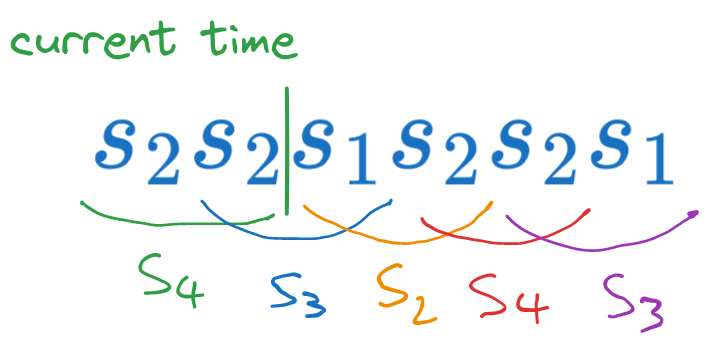 current time
s₂s₂|s₁s₂s₂s₁
S₄ S₃ S₂ S₄ S₃